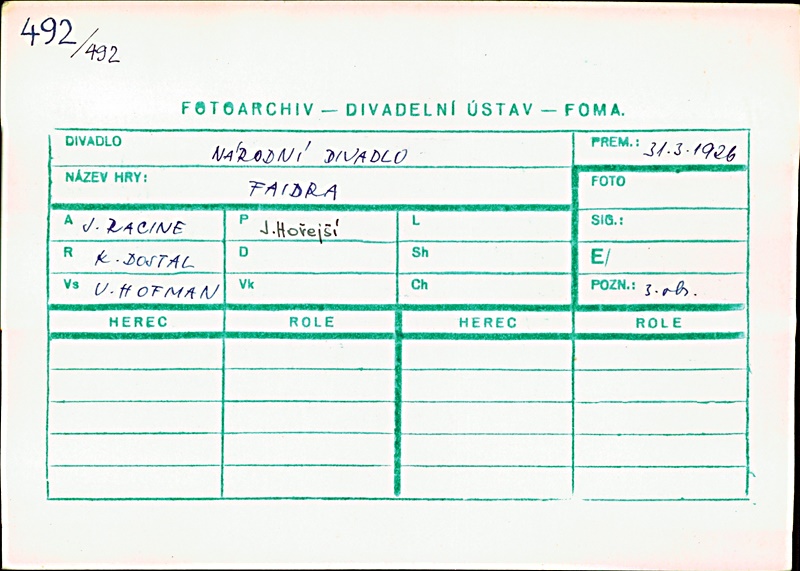 492/492
FOTOARCHIV — DIVADELNÍ ÚSTAV — FOMA.
DIVADLO NÁRODNÍ DIVADLO PREM.: 31.3.1926
NÁZEV HRY: FAIDRA FOTO
A J. RACINE P J. Hořejší L SIG.:
R K. DOSTAL D Sh E/
Vs V. HOFMAN Vk Ch POZN.: 3. obr.
HEREC ROLE HEREC ROLE